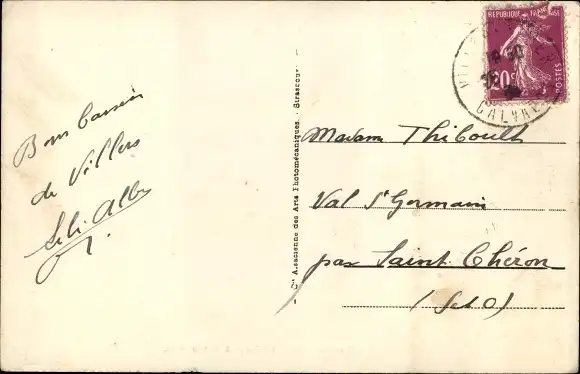 Bons baisers
de Villers
Lili Albe
Cie Alsacienne des Arts Photomécaniques - Strasbour
REPUBLIQUE FRANÇAISE
20c
POSTES
CALVA
Madame Thiboult
Val St Germain
par Saint-Chéron
(S et O)